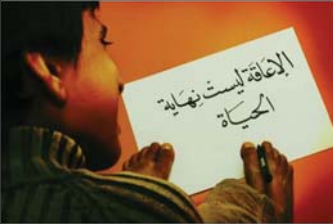 الإعاقة ليست نهاية
الحياة